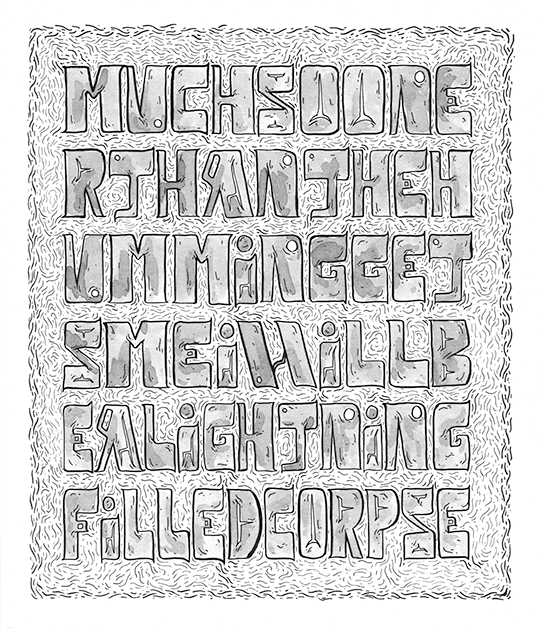 MUCHSOONE
RTHANTHEH
UMMiNGGET
SMEiWiLLB
EALiGHTNiNG
FiLLEDCORPSE